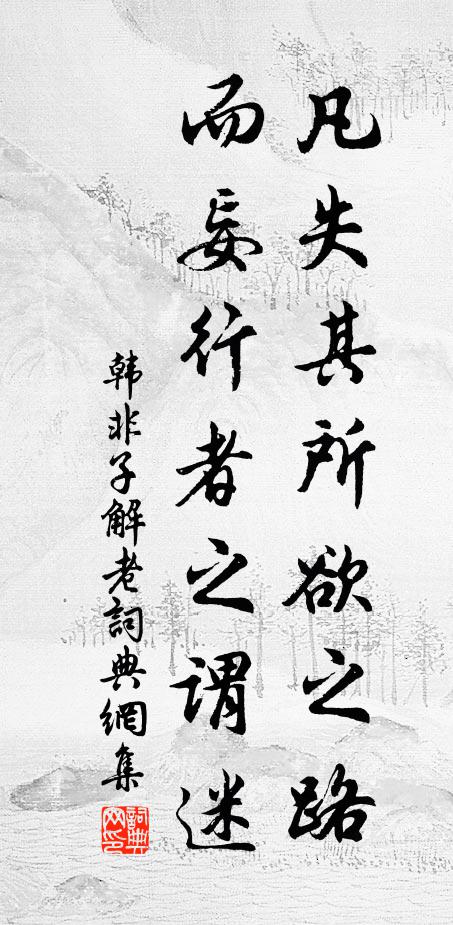 凡失其所欲之路
而妄行者之謂迷
韩非子解老詞典網集
詞典網印